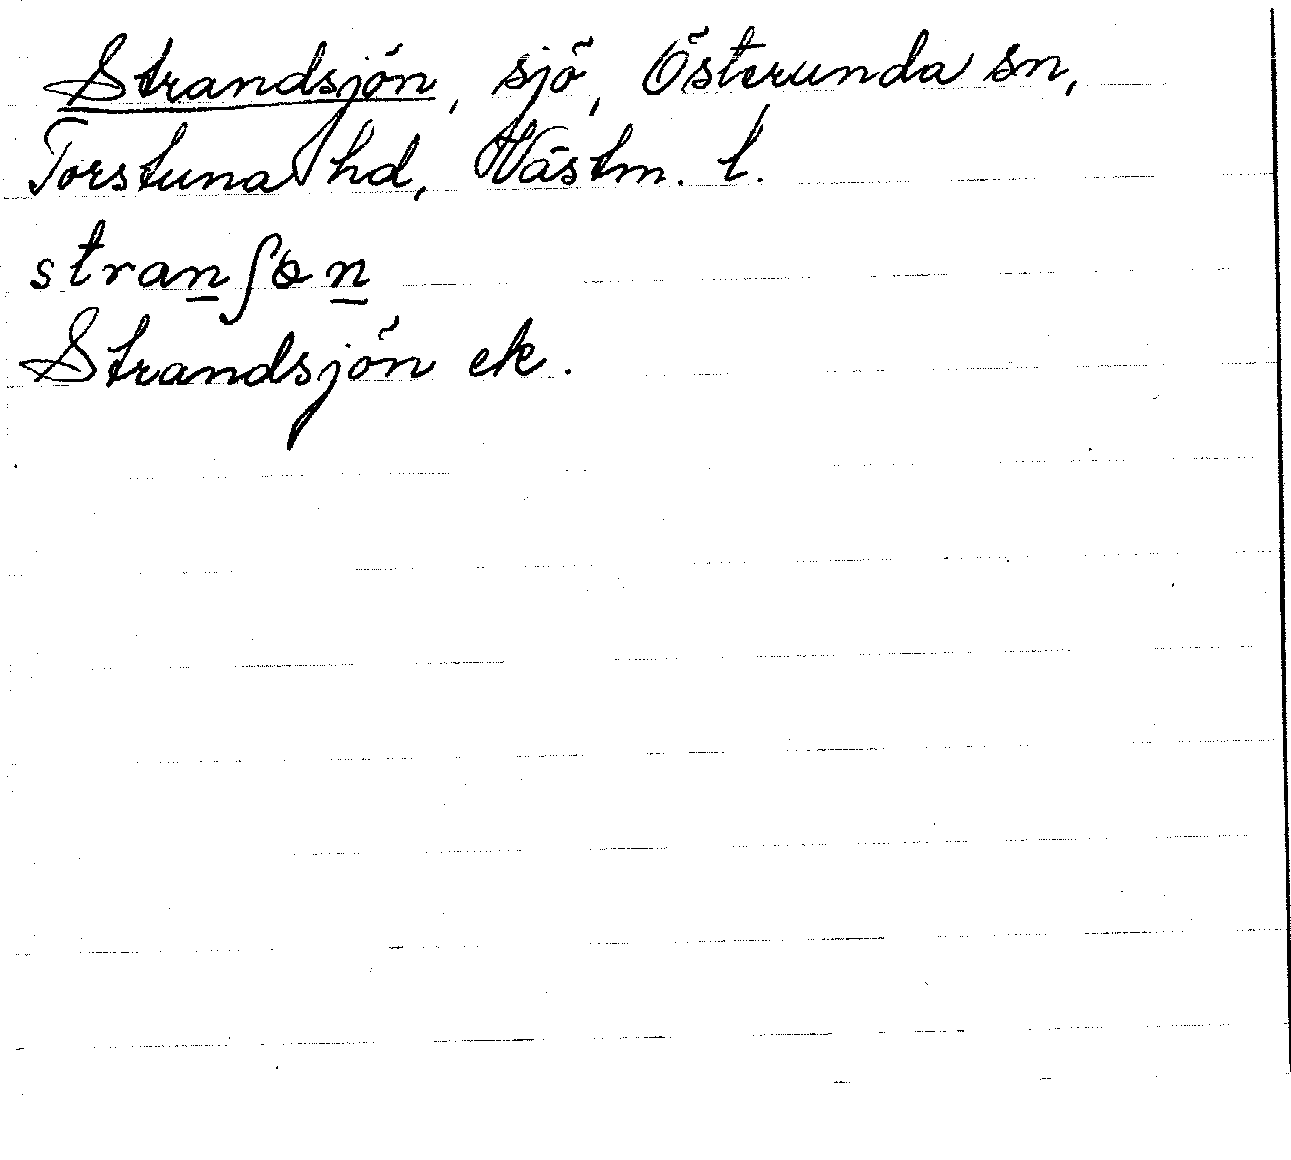 Strandsjön, sjö, Österunda sn,
Torstuna hd, Västm. l.
stran̲ʃɵn̲
Strandsjön ek.